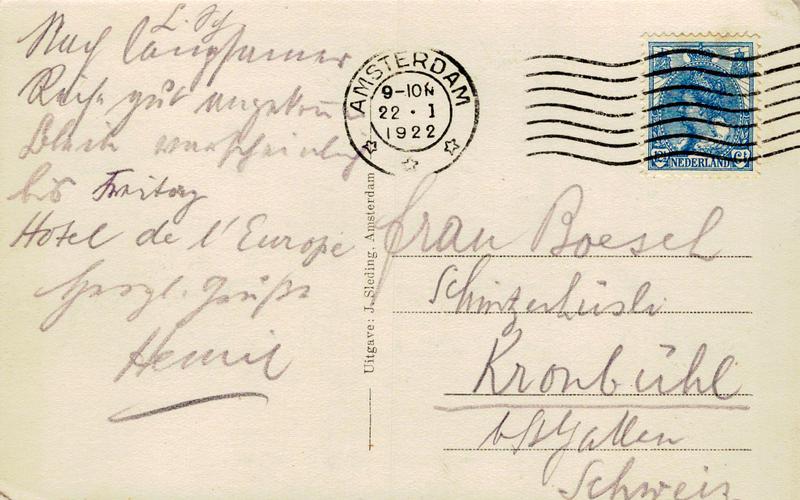 L. Sch
Nach langsamer
Reise gut angekom
Bleib wahrscheinlich
bis Freitag
Hotel de l'Europe
Herzl. Grüße
AMSTERDAM
9-10N
22 · I
1922
NEDERLAND
Uitgave: J. Sleding, Amsterdam
Frau Boesch
Kronbühl
b/St Gallen
Schweiz